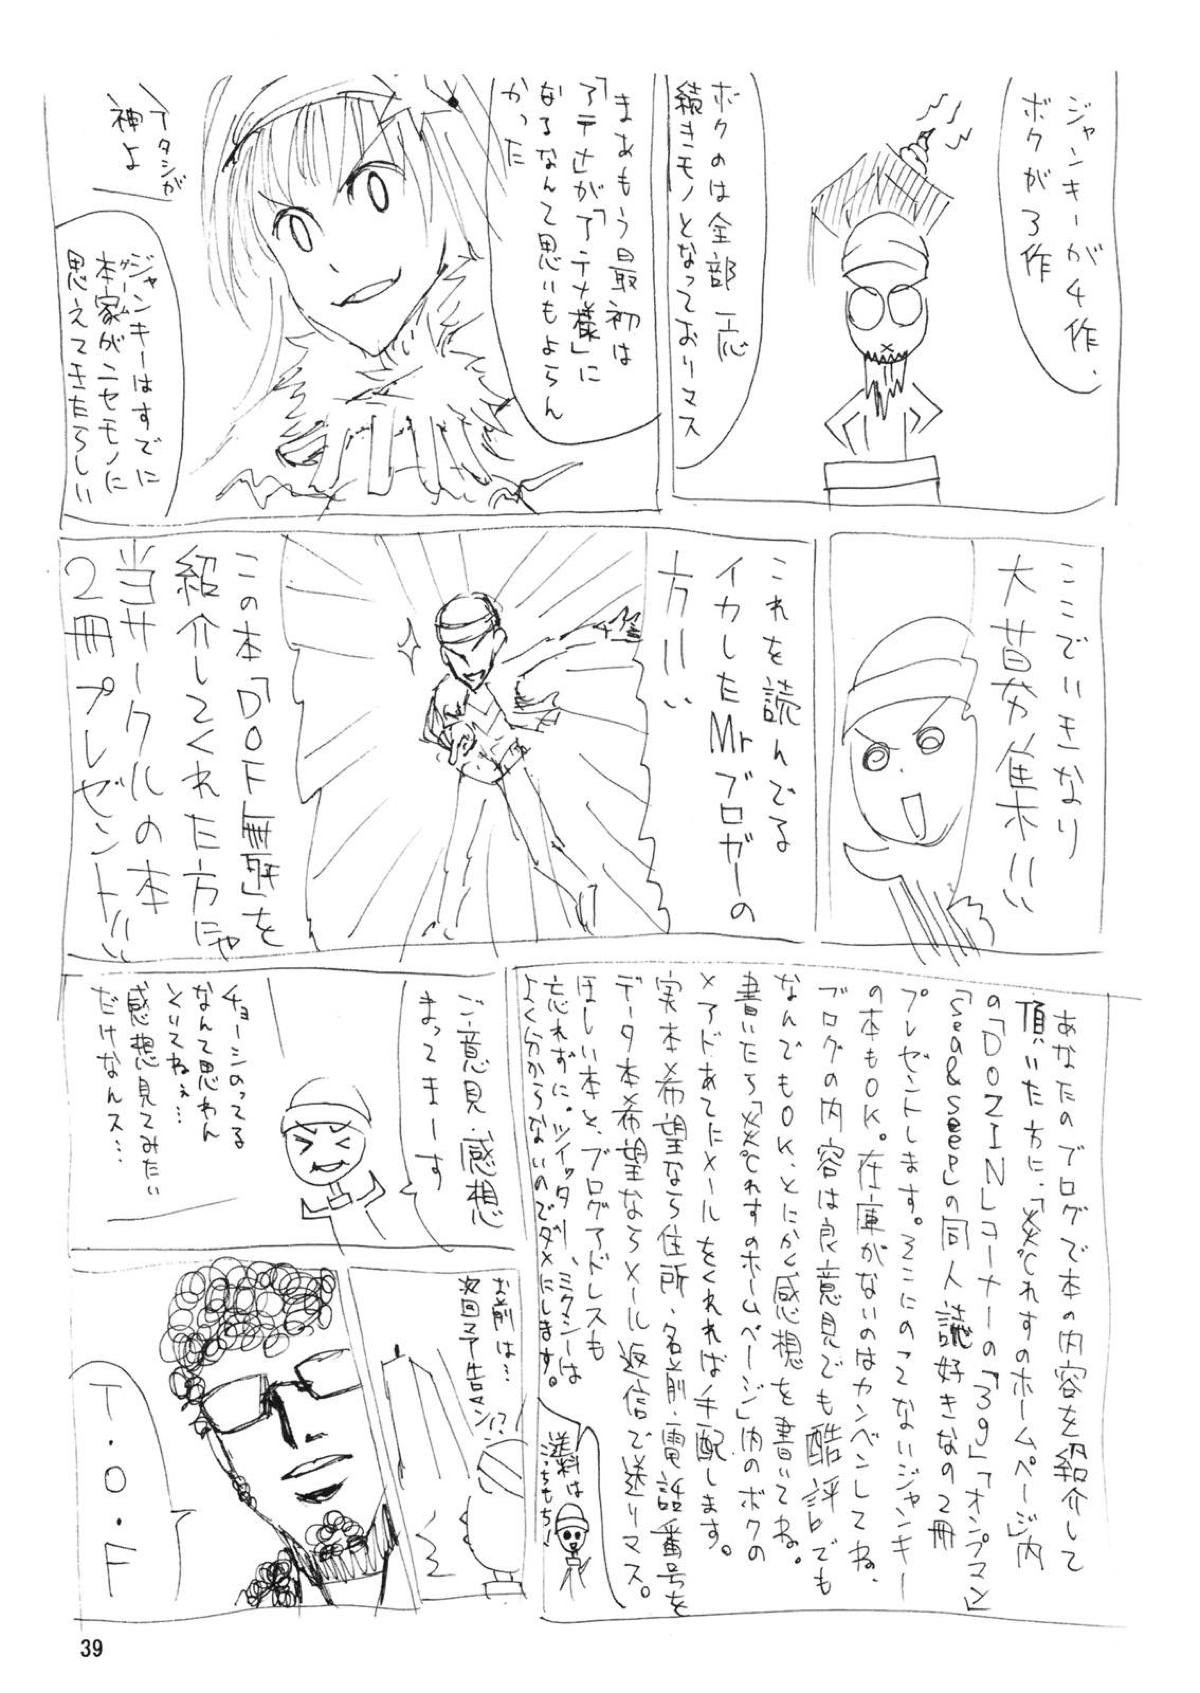 ジャンキーが4作、
ボクが3作
ボクのは全部一応
続きモノとなっております
まあもう最初は
「アテ辻が「アテナ様」に
なるなんて思いもよらん
かった
アタシが
神よ
ジャンキーはすでに
本家がニセモノに
思えてきたらしい
ここでいきなり
大募集!!!
これを読んでる
イカしたMrブロガーの
方!!!
この本「DOF無双」を
紹介してくれた方にゃ
当サークルの本
2冊プレゼント!!!
あなたのブログで本の内容を紹介して
頂いた方に、「災℃れすのホームページ」内
の「DOZIN」コーナーの「39」「オンプマン」
「Sea&Seep」の同人誌好きなの2冊
プレゼントします。そこにのってないジャンキー
の本もOK。在庫がないのはカンベンしてね、
ブログの内容は良意見でも酷評でも
なんでもOK、とにかく感想を書いてね。
書いたら「災℃れすのホームページ」内のボクの
メアドあてにメールをくれれば手配します。
実本希望なら住所・名前・電話番号を
データ本希望ならメール返信で送りマス。
ほしい本と、ブログアドレスも
忘れずに。ツイッター、ミクシーは
よく分からないのでダメにします。
送料は
こっちもち!
ご意見・感想
まってまーす
チョーシのってる
なんて思わん
とくりてねぇ…
感想見てみたい
だけなんス…
お前は…
次回予告マン!?
T・O・F
39